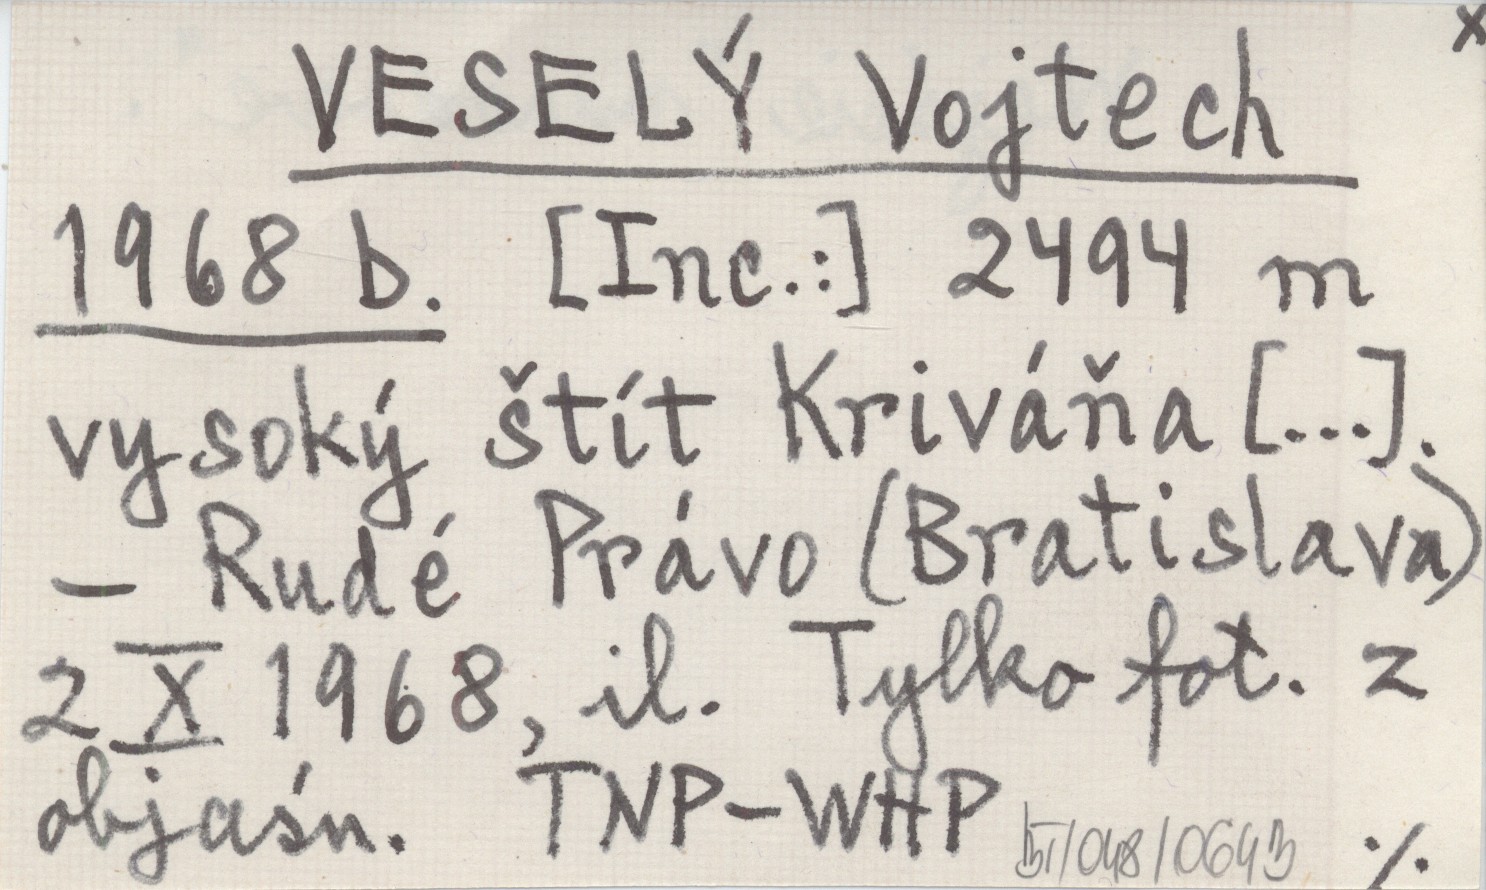 x
VESELÝ Vojtech
1968 b. [Inc.:] 2494 m
vysoký štít Kriváňa [...].
– Rudé Právo (Bratislava)
2 X 1968, il. Tylko fot. z
objaśn. TNP–WHP
BT/048/0643
·/.